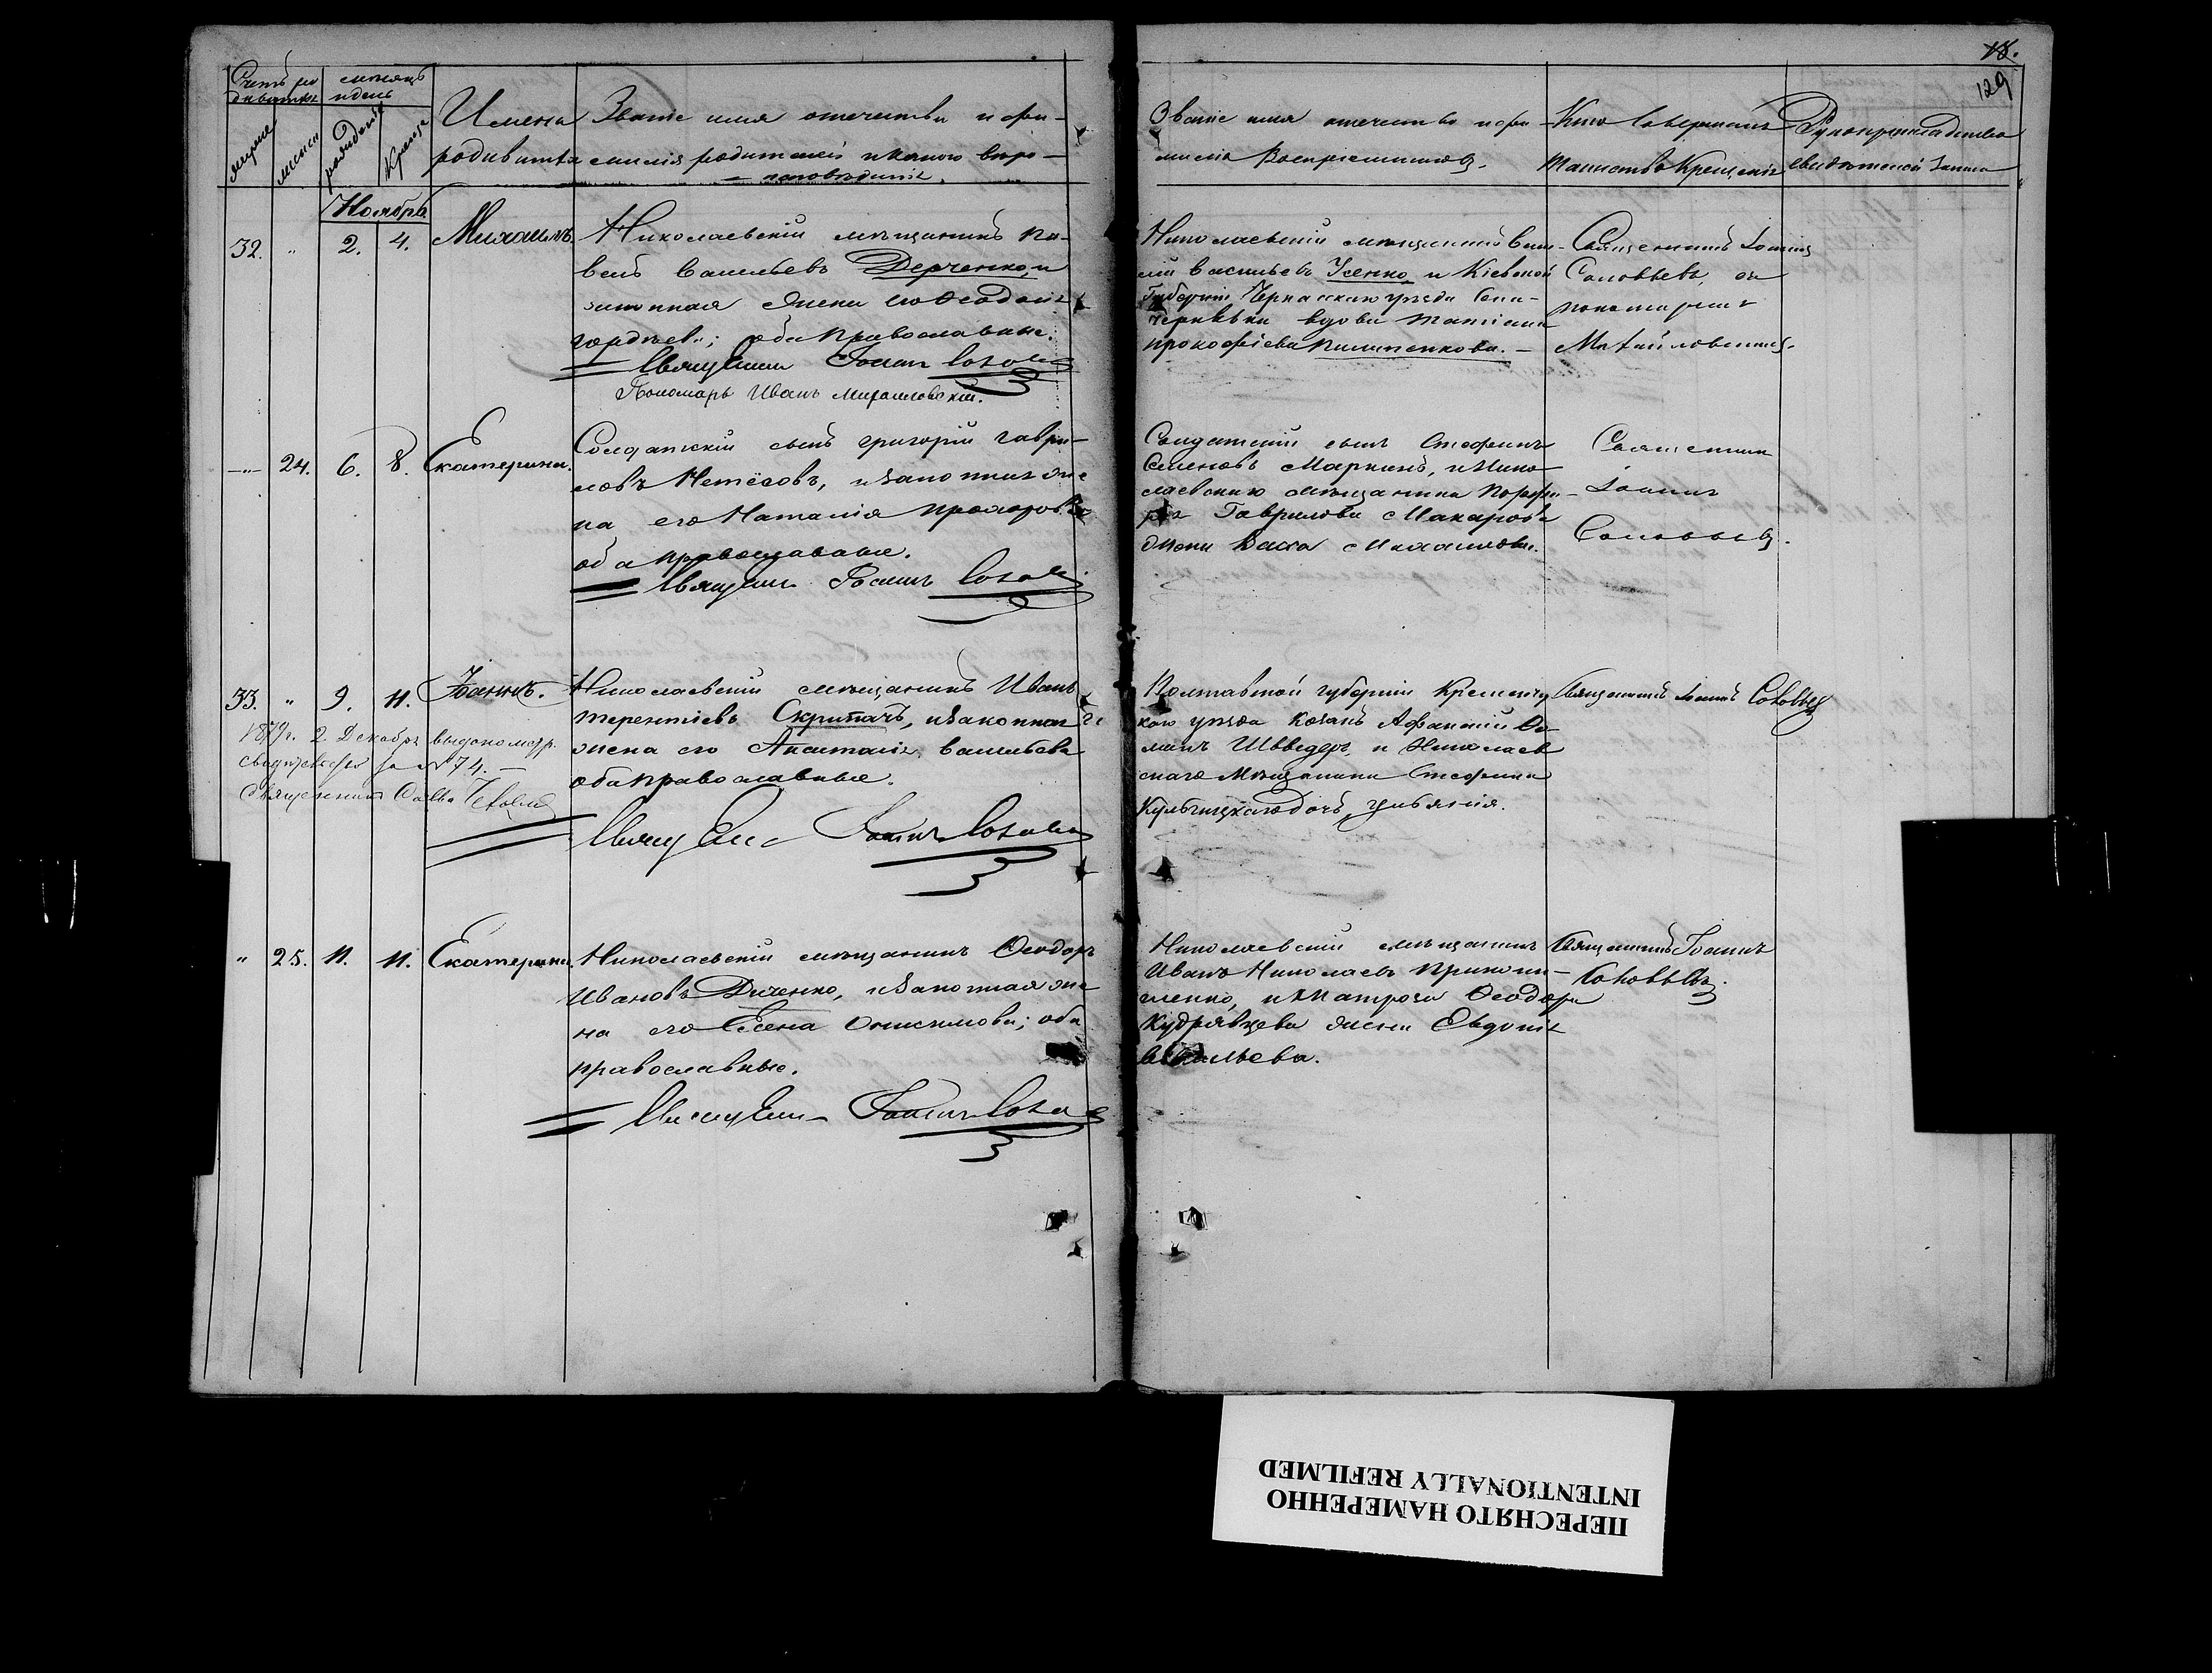 18.
129
Счетъ ро
дившихъ
мѣсяцъ
и день
мужск
женск
рожденія
Крещен
Имена
родившихъ
Званіе имя отчество и фа-
милія родителей и какого вѣро-
исповѣданія.
Званіе имя отчество и фа-
милія Воспріемниковъ.
Кто Совершалъ
Таинство Крещенія
Рукоприкладство
свидѣтелей записи
Ноябрь
32. " 2. 4. Михаилъ.
Николаевскій мѣщанинъ Па-
велъ Васильевъ Дерченко, и
законная жена его Феодосія
Гордѣева; оба Православные.
Священникъ Іоаннъ Соловьевъ
Пономарь Иванъ Михайловскій.
Николаевскій мѣщанинъ Васи-
лій Васильевъ Усенко и Кіевской
Губерніи Черкаскаго уѣзда
вдова Татіана
Прокофіева Пилипенкова.
Священникъ Іоаннъ
Соловьевъ, съ
пономаремъ
Михайловскимъ.
—"— 24. 6. 8. Екатерина.
Солдатскій сынъ Григорій Гаври-
ловъ Нетёсовъ, и законная же
на его Наталія Прохорова
оба православные.
Священникъ Іоаннъ Соловьевъ
Солдатскій сынъ Стефанъ
Семеновъ Маркинъ, и Нико
лаевскаго мѣщанина Порфи-
рія Гаврилова Макарова
жена Васса Михаилова.
Священникъ
Іоаннъ
Соловьевъ.
33. " 9. 11. Іоаннъ.
1879г. 2 Декабря выдано метр.
свидѣтельство за № 74.—
Священникъ Савва
Николаевскій мѣщанинъ Иванъ
Терентіевъ Скрипачъ, и законная
жена его Анастасія Васильева
оба православные.
Священникъ Іоаннъ Соловьевъ
Полтавской губерніи Кременчу
каго уѣзда Козакъ Афанасій
Шведеръ, и Николаев
скаго Мѣщанина Стефана
дочь, Ульянія.
Священникъ Іоаннъ Соловьевъ
" 25. 11. 11. Екатерина.
Николаевскій мѣщанинъ Феодоръ
Ивановъ Дьяченко, и законная же
на его Елена Онисимова; оба
православные.
Священникъ Іоаннъ Соловьевъ
Николаевскій мѣщанинъ
Иванъ Николаевъ
и Матроса Феодора
Кудрявцева жена Евдокія
Васильева.
Священникъ Іоаннъ
Соловьевъ.
ПЕРЕСНЯТО НАМЕРЕННО
INTENTIONALLY REFILMED